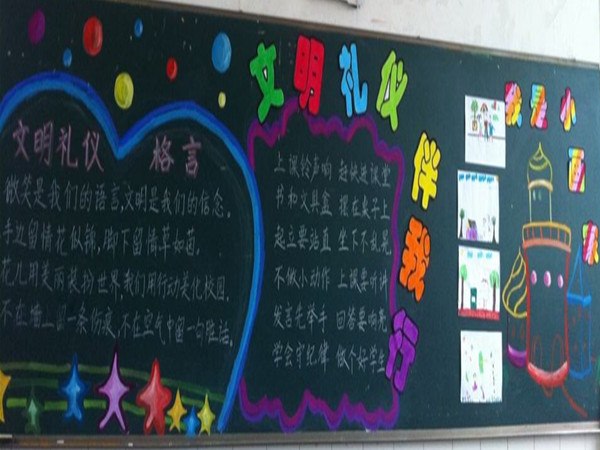 文明礼仪 格言
微笑是我们的语言,文明是我们的信念。
手边留情花似锦,脚下留情草如茵。
花儿用美丽装扮世界,我们用行动美化校园。
不在墙上留一条伤痕,不在空气中留一句脏话。
文明礼仪伴我行
上课铃声响 赶快进课堂
书和文具盒 摆在桌子上
起立要站直 坐下不乱晃
不做小动作 上课要听讲
发言先举手 回答要响亮
学会守纪律 做个好学生
我是小画家